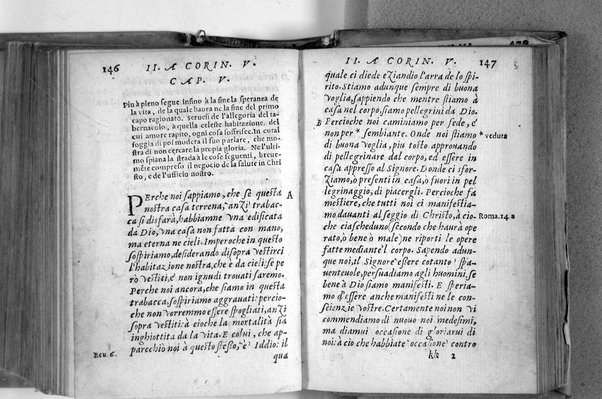 146 II. A CORIN. V.
CAP. V.
Più à pleno segue infino à la fine la speranza de
la vita, de la quale hauea ne la fine del primo
capo ragionato. Seruesi de l'allegoria del ta-
bernacolo, à quella celeste habitatione. del
cui amore rapito, ogni cosa sofferisce. In cotal
foggia di poi modera il suo parlare, che mo-
stra di non cercare la propia gloria. Ne l'ulti-
mo spiana la strada à le cose seguenti, breue-
mente compresso il negocio de la salute in Chri
sto, e de l'ufficio nostro.
PErche noi sappiamo, che se questa A
nostra casa terrena, anzi trabac-
ca si disfarà, habbiamne vna edificata
da Dio, vna casa non fatta con mano,
ma eterna ne cieli. Imperoche in questo
sospiriamo, desiderando disopra vestirci
l'habitazione nostra, che è da cieli: se pe
rò vestiti, e non ignudi trouati saremo.
Perche noi ancora, che siamo in questa
trabacca, sospiriamo aggrauati: percio-
che non vorremmo essere spogliati, anzi
sopra vestiti: à cioche la mortalità sia
inghiottita da la vita. E colui, che ap-
Ecu. 6. parecchio noi à questo stesso, è Iddio: il
qua
II. A CORIN. V. 147
quale ci diede eziandio l'arra de lo spi-
rito. Stiamo adunque sempre di buona
voglia, sappiendo che mentre stiamo à
casa nel corpo, siamo pellegrini da Dio.
B Percioche noi caminiamo per fede, e
non per * sembiante. Onde noi stiamo * veduta
di buona voglia, piu tosto approuando
di pellegrinare dal corpo, ed essere in
casa appresso al Signore. Donde ci sfor-
ziamo, ò presenti in casa, ò fuori in pel
legrinaggio, di piacergli. Percioche fa
mestiere, che tutti noi ci manifestia-
mo dauanti al seggio di Christo, à cio- Roma. 14. a
che ciascheduno (secondo che haurà ope
rato, ò bene ò male) ne riporti le opere
fatte mediante'l corpo. Sapendo adun-
que noi, il Signore essere cotanto spa-
uenteuole, persuadiamo agli huomini, se
bene à Dio siamo manifesti. E speria-
mo d'essere anche manifesti ne le con-
scienzie vostre. Certamente noi non vi
commendiamo di nuouo noi medesimi,
ma diamui occasione di gloriarui di
noi: à cio che habbiate occasione contro
kk 2